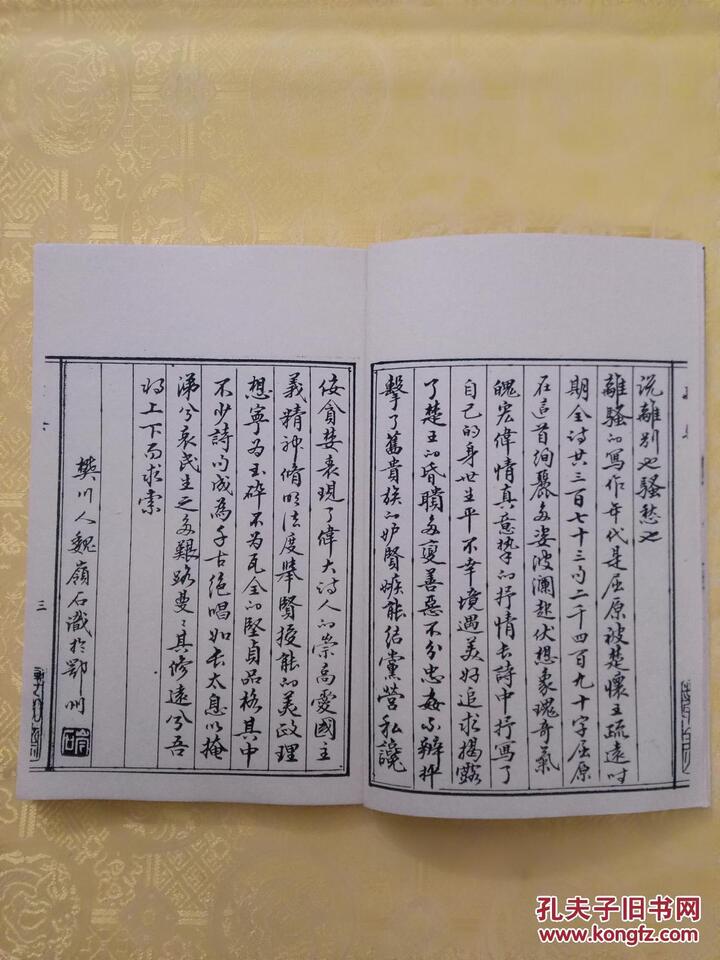 说離别也騷愁也
離騷的寫作年代是屈原被楚懷王疏遠时
期全诗共三百七十三句二千四百九十字屈原
在這首绚麗多姿波澜起伏想象瑰奇氣
魄宏偉情真意挚的抒情长詩中抒寫了
自己的身世生平不幸境遇美好追求揭露
了楚王的昏聵多變善惡不分忠姦不辨抨
擊了舊貴族的妒賢嫉能结黨营私讒
佞貪婪表現了偉大诗人的崇高愛國主
義精神脩明法度舉賢授能的美政理
想寧为玉碎不为瓦全的堅貞品格其中
不少詩句成為千古绝唱如长太息以掩
涕兮哀民生之多艱路曼〻其修遠兮吾
将上下而求索
樊川人魏嶺石識於鄂州
三
孔夫子旧书网
www.kongfz.com